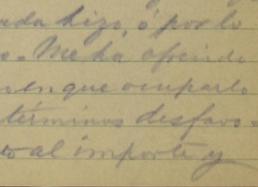 nda hizo, ó por lo
o. Me ha ofrecido
en que ocuparlo
términos desfavo-
to al importe y